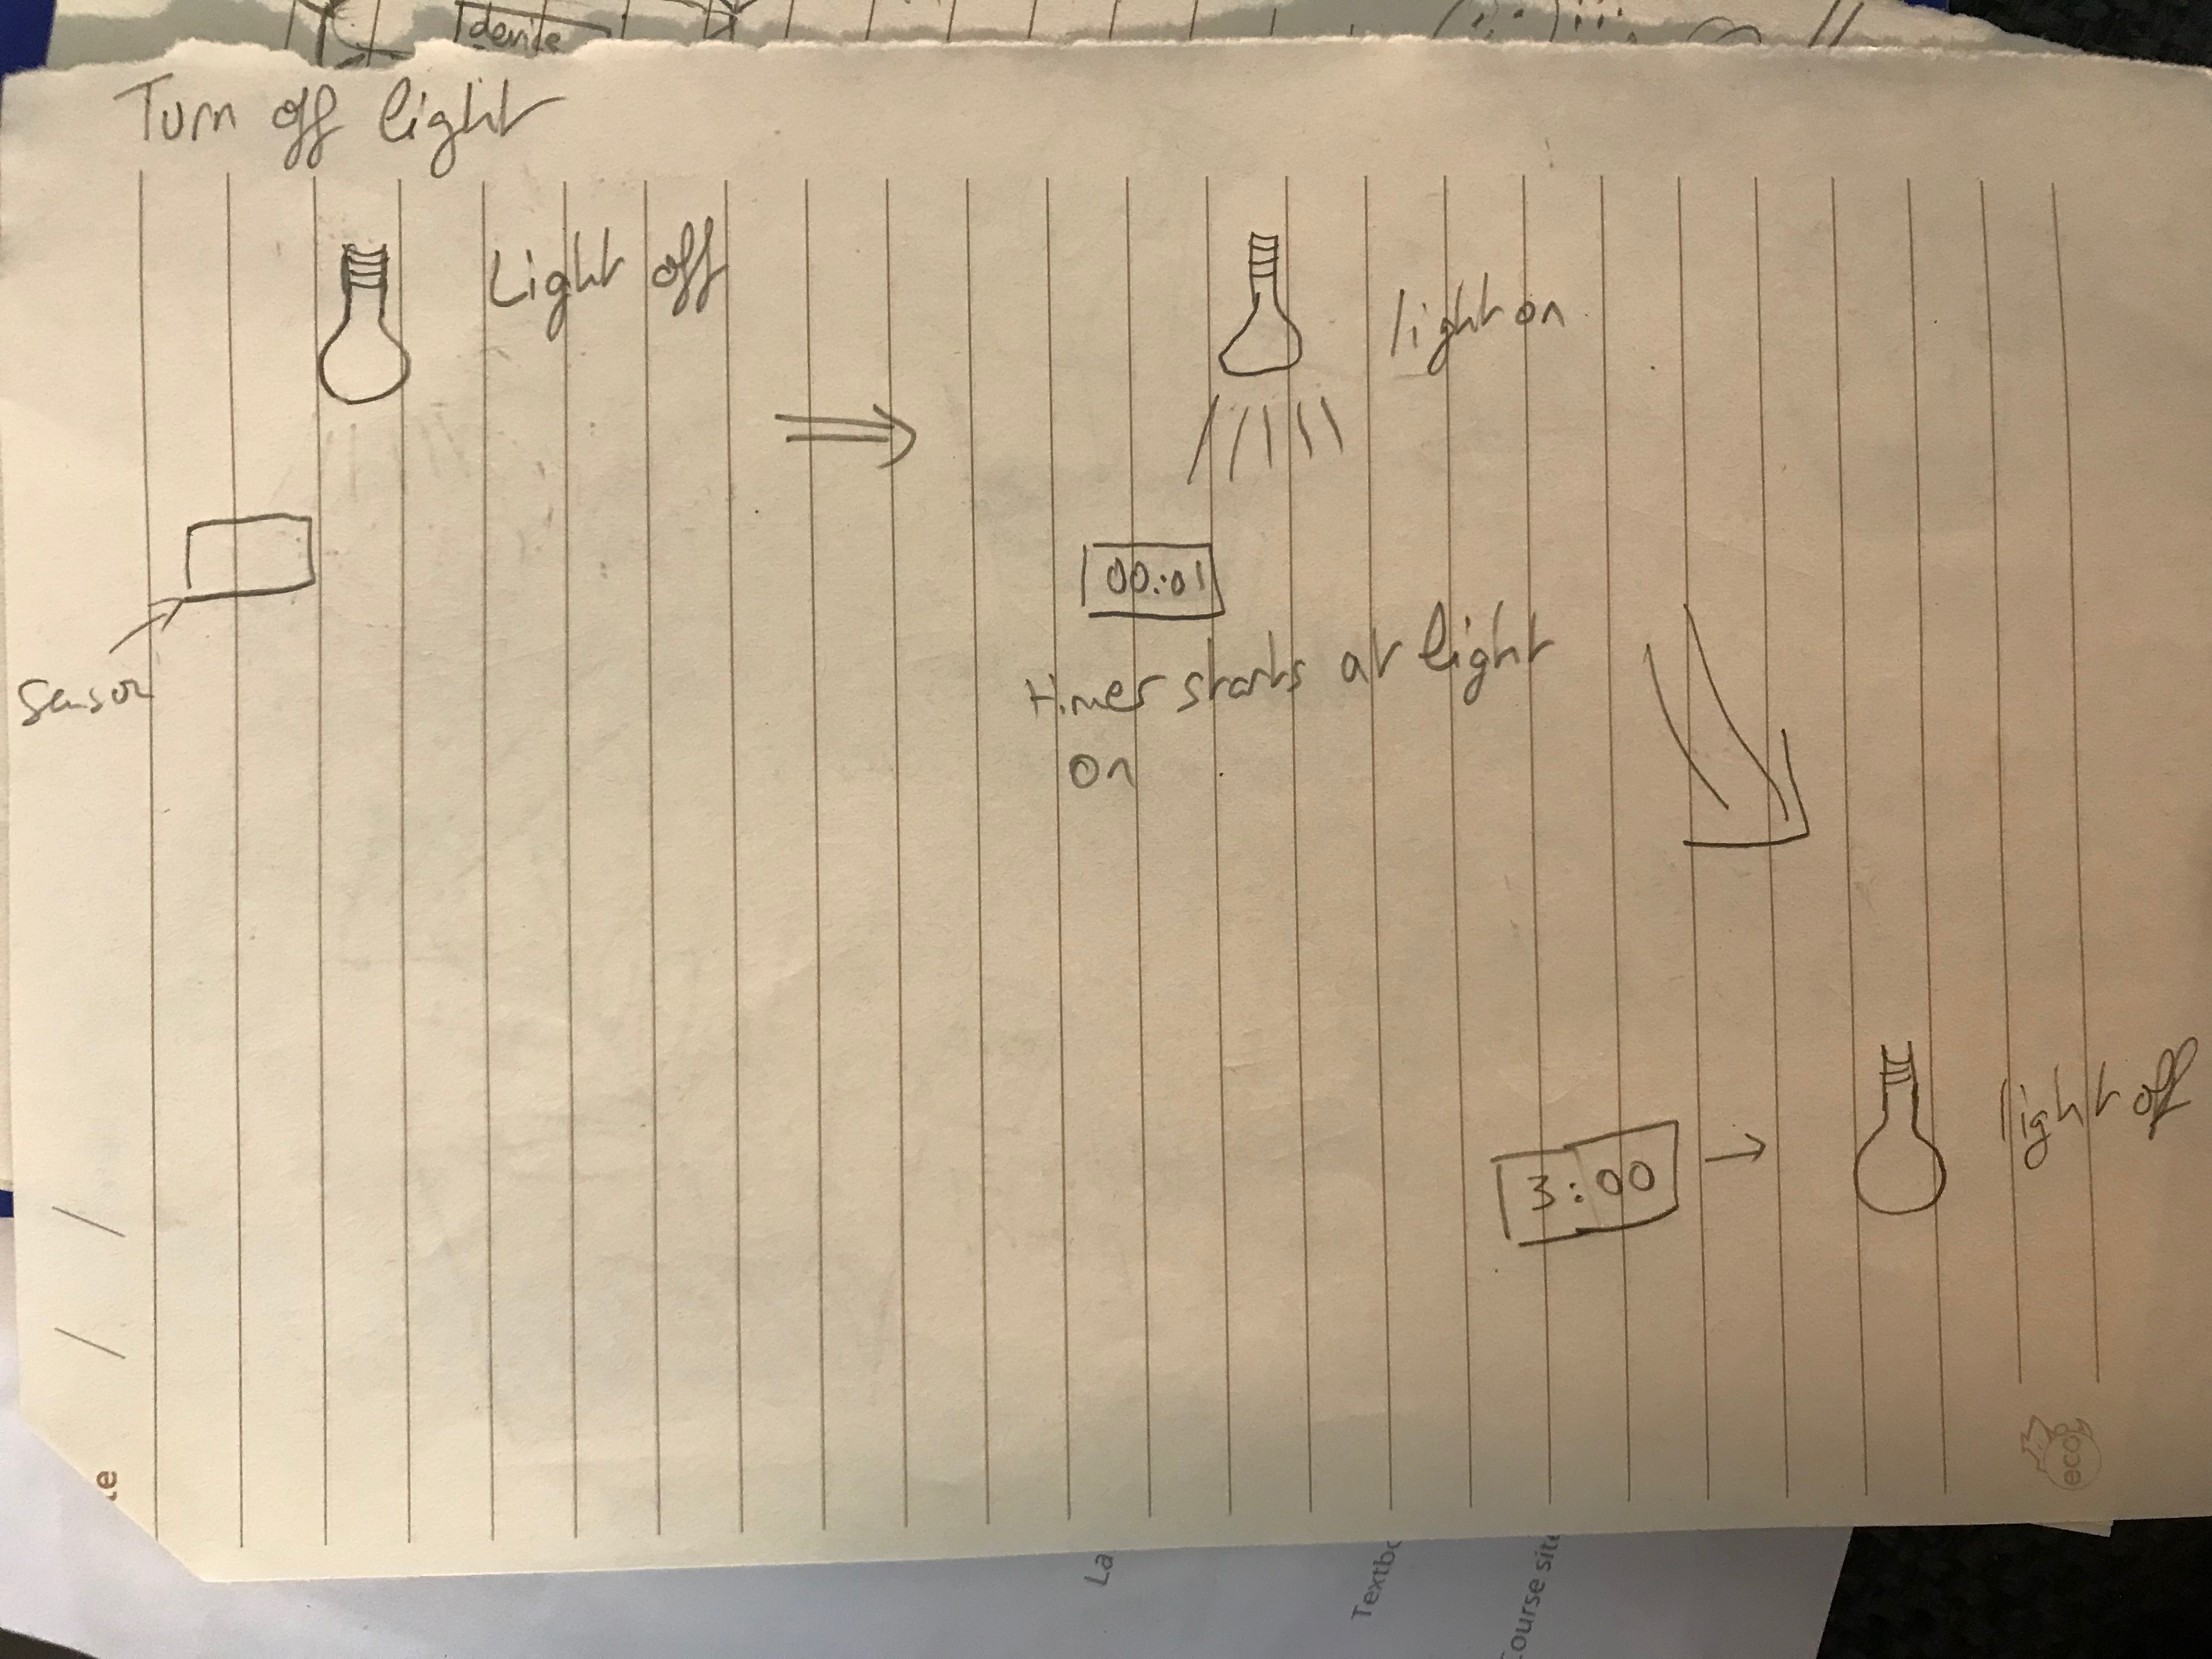 device
Turn off light
Light off
light on
sensor
00:01
timer starts at light
on
3:00
light off
eco
le
La
Textbo
Course site